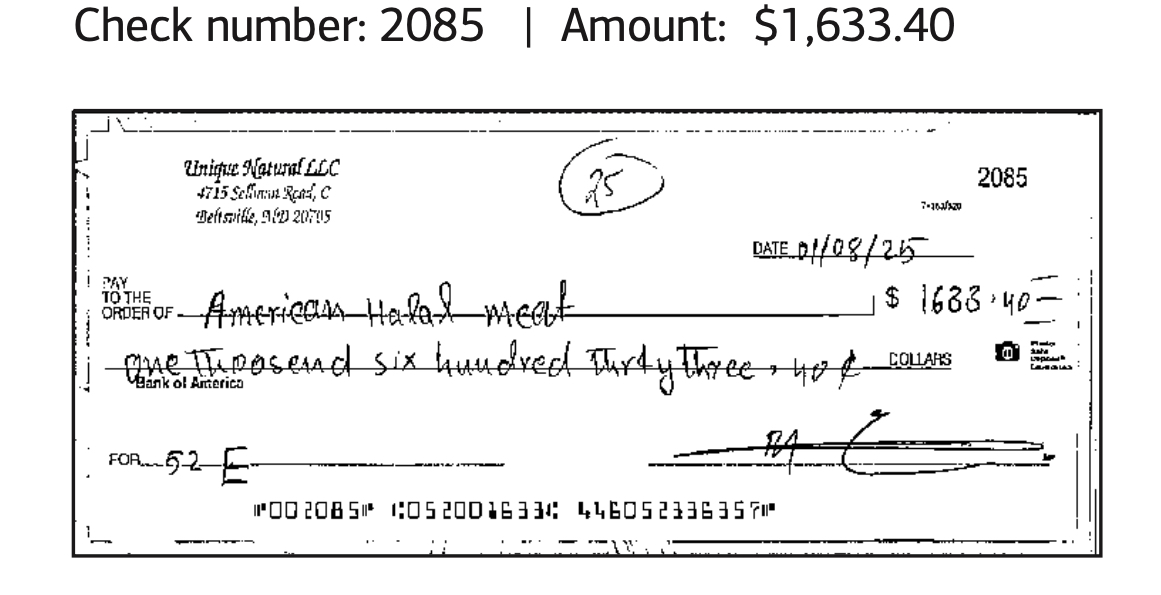 Check number: 2085 | Amount: $1,633.40
Unique Natural LLC
25
2085
4715 Sellman Road, C
Beltsville, MD 20705
7-163/520
DATE 01/08/25
PAY
TO THE
ORDER OF American Halal meat $ 1633.40
one Thoosend six hundred thirty three . 40 ¢ DOLLARS
Bank of America
FOR 52 E
⑈002085⑈ ⑆052001633⑆ 446052336357⑈